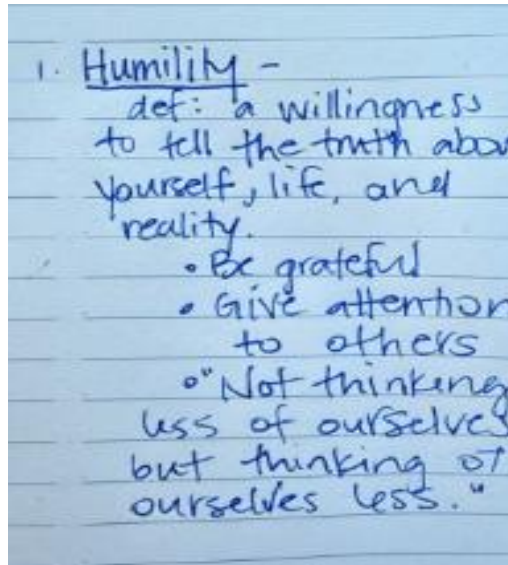 1. Humility -
def: a willingness
to tell the truth abou
yourself, life, and
reality.
• Be grateful
• Give attention
to others
• "Not thinking
less of ourselves
but thinking of
ourselves less."